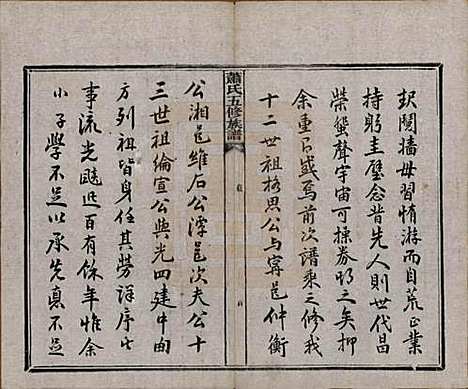 釁鬩牆毋習惰游而自荒正業
持躬圭璧念昔先人則世代昌
榮蜚聲宇宙可操券明之矣抑
余重吊感焉前次譜乘三修我
十二世祖格思公與甯邑仲衡
蕭氏五修族譜
公湘邑維石公潭邑次夫公十
三世祖綸宣公與光四建中曲
方列祖皆身任其勞詳序些
事流光颷迅百有餘年惟余
小子學不足以承先惪不足